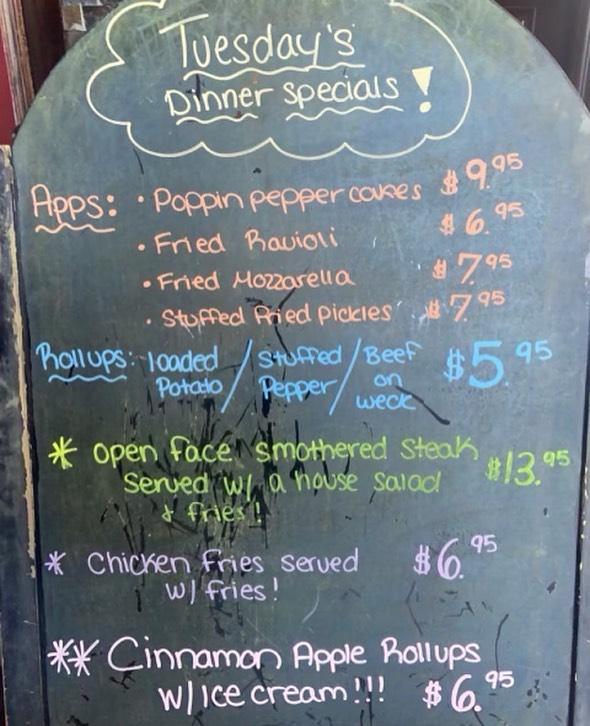 Tuesday's
Dinner specials!
Apps: • Poppin pepper cakes $9.95
• Fried Ravioli $6.95
• Fried Mozzarella $7.95
• Stuffed Fried pickles $7.95
Rollups: loaded / Stuffed / Beef $5.95
Potato / Pepper / on
weck
* Open face smothered Steak $13.95
Served w/ a house salad
& fries!
* Chicken Fries served $6.95
w/ fries!
** Cinnamon Apple Rollups
w/ Ice cream!!! $6.95